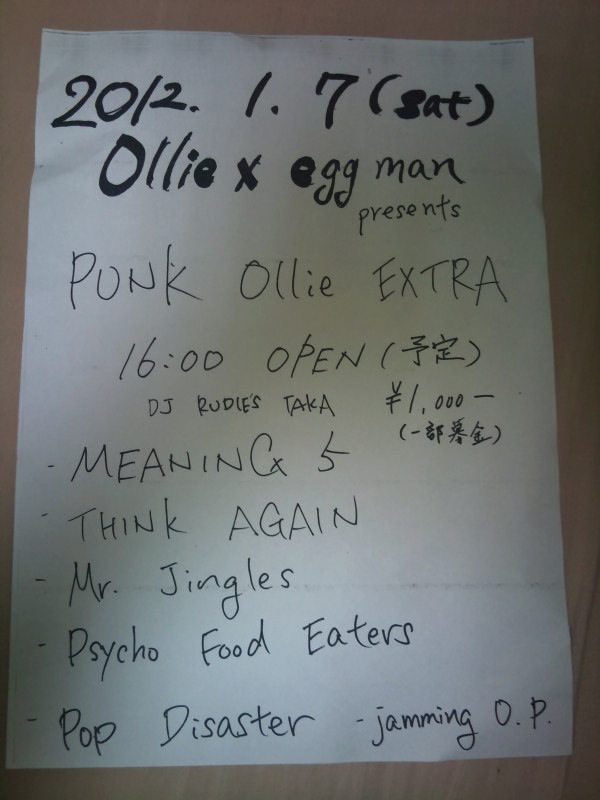 2012. 1. 7 (sat)
Ollie x egg man
presents
PUNK Ollie EXTRA
16:00 OPEN (予定)
DJ RUDIE'S TAKA ¥1,000-
(一部募金)
- MEANING 5
- THINK AGAIN
- Mr. Jingles
- Psycho Food Eaters
- Pop Disaster - jamming O.P.